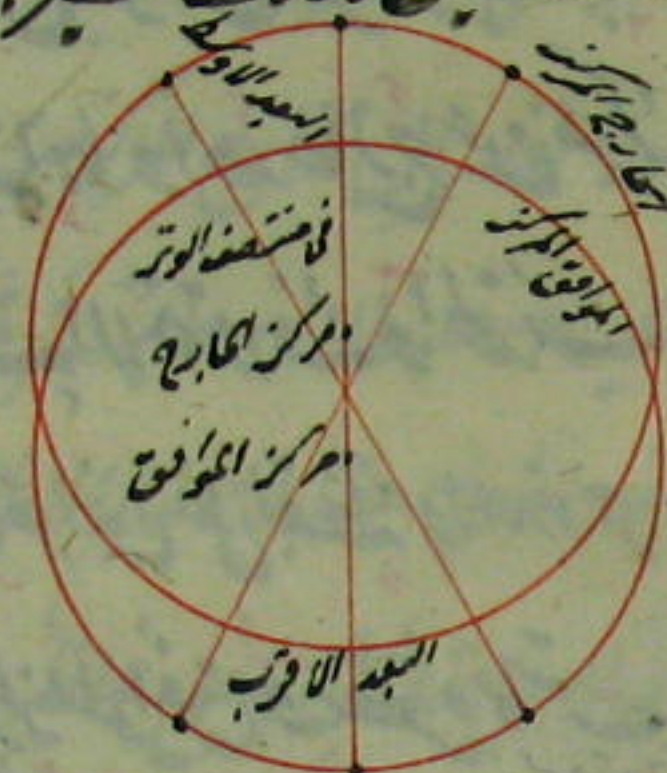 البعد الاوسط
الخارج المركز
الموافق المركز
في منتصف الوتر
مركز الخارج
مركز الموافق
البعد الاقرب